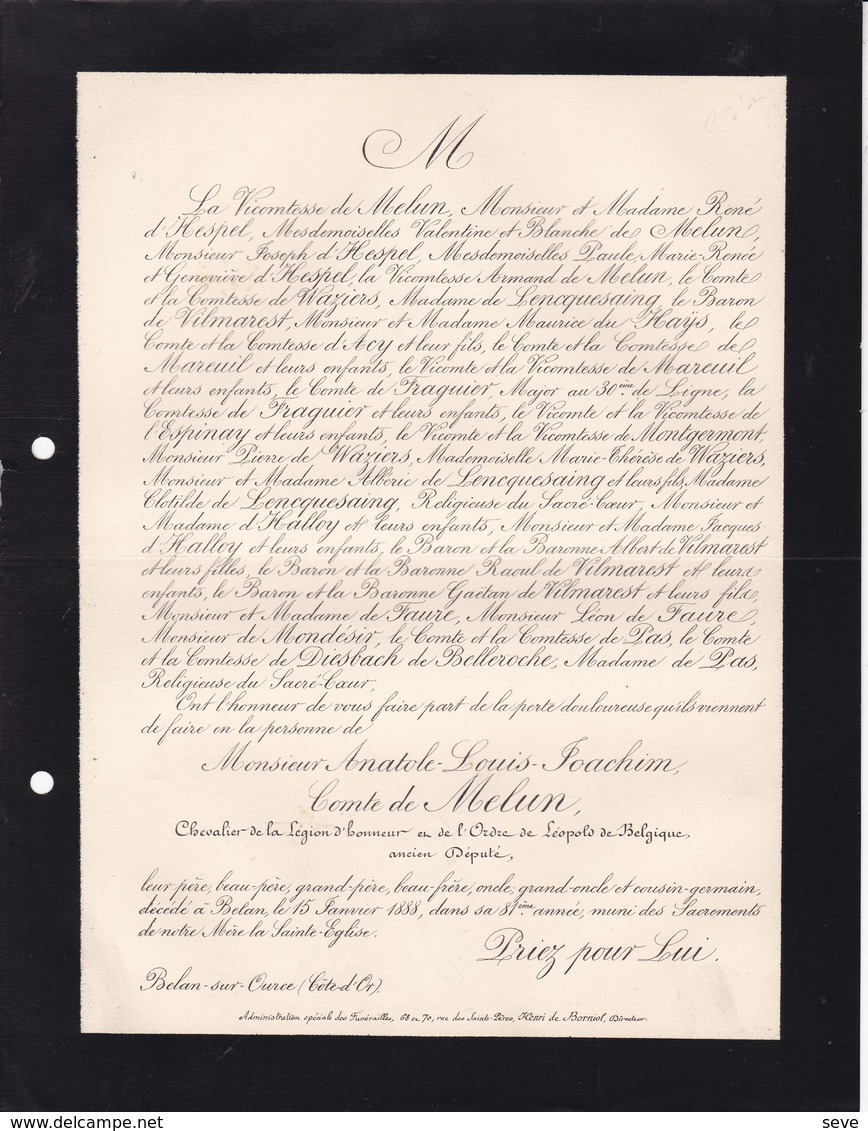 M
La Vicomtesse de Melun, Monsieur et Madame René
d'Hespel, Mesdemoiselles Valentine et Blanche de Melun,
Monsieur Joseph d'Hespel, Mesdemoiselles Paule Marie-Renée
et Geneviève d'Hespel, la Vicomtesse Armand de Melun, le Comte
et la Comtesse de Waziers, Madame de Lencquesaing, le Baron
de Vilmarest, Monsieur et Madame Maurice du Haÿs, le
Comte et la Comtesse d'Acy et leur fils, le Comte et la Comtesse de
Mareuil et leurs enfants, le Vicomte et la Vicomtesse de Mareuil
et leurs enfants, le Comte de Fraguier, Major au 30ème de Ligne, la
Comtesse de Fraguier et leurs enfants, le Vicomte et la Vicomtesse de
l'Espinay et leurs enfants, le Vicomte et la Vicomtesse de Montgermont,
Monsieur Pierre de Waziers, Mademoiselle Marie-Thérèse de Waziers,
Monsieur et Madame Albéric de Lencquesaing et leurs fils, Madame
Clotilde de Lencquesaing, Religieuse du Sacré-Cœur, Monsieur et
Madame d'Halloy et leurs enfants, Monsieur et Madame Jacques
d'Halloy et leurs enfants, le Baron et la Baronne Albert de Vilmarest
et leurs filles, le Baron et la Baronne Raoul de Vilmarest et leurs
enfants, le Baron et la Baronne Gaëtan de Vilmarest et leurs fils,
Monsieur et Madame de Faure, Monsieur Léon de Faure,
Monsieur de Mondésir, le Comte et la Comtesse de Pas, le Comte
et la Comtesse de Diesbach de Belleroche, Madame de Pas,
Religieuse du Sacré-Cœur,
Ont l'honneur de vous faire part de la perte douloureuse qu'ils viennent
de faire en la personne de
Monsieur Anatole-Louis-Joachim,
Comte de Melun,
Chevalier de la Légion d'honneur et de l'Ordre de Léopold de Belgique,
ancien Député,
leur père, beau-père, grand-père, beau-frère, oncle, grand-oncle et cousin-germain,
décédé à Belan, le 15 Janvier 1888, dans sa 81ème année, muni des Sacrements
de notre Mère la Sainte-Eglise.
Priez pour Lui.
Belan-sur-Ource (Côte-d'Or).
Administration spéciale des Funérailles, 68 et 70, rue des Saints-Pères, Henri de Borniol, Directeur.
seve